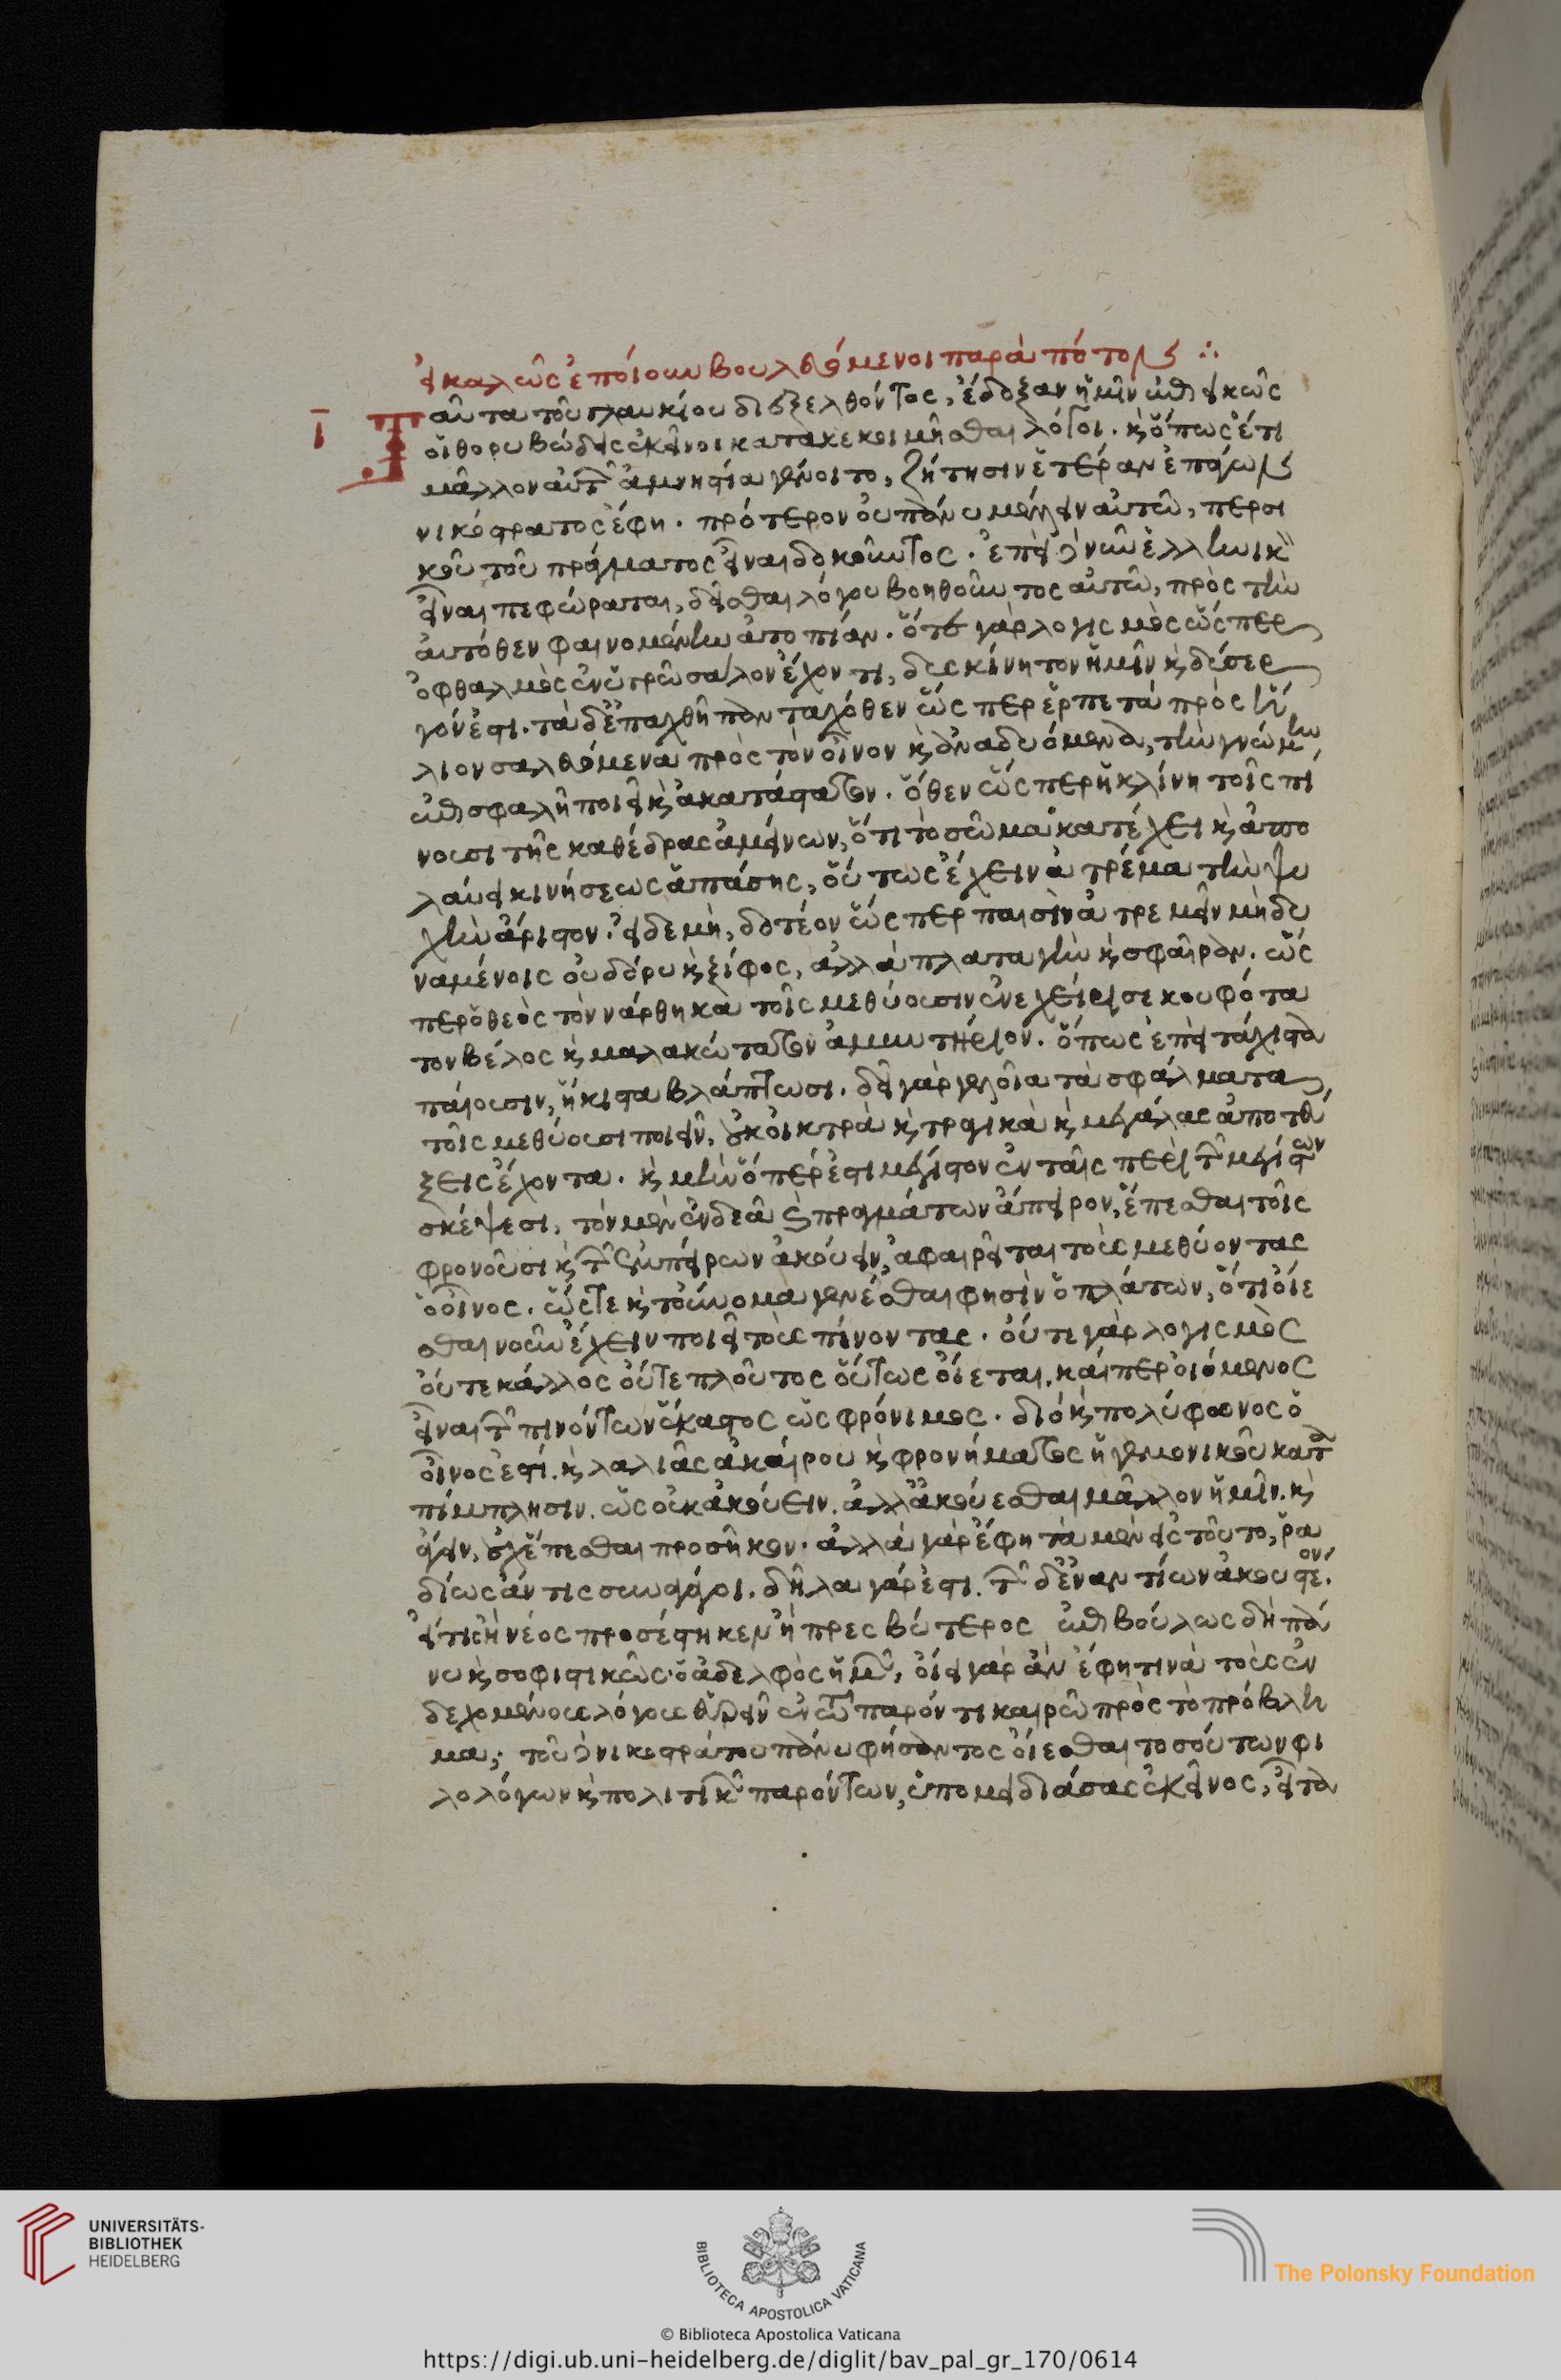 εἰ καλῶς ἐποίουν βουλευόμενοι παρὰ πότον ∴
ι Ταῦτα τοῦ γλαυκίου διεξελθόντος, ἔδοξαν ἡμῖν εὐεικῶς
οἱ θορυβώδεις ἐκεῖνοι κατακεκοιμῆσθαι λόγοι. κὶ ὅπως ἔτι
μᾶλλον αὐτῶν ἀμνηστία γένοιτο, ζήτησιν ἑτέραν ἐπάγων
νικόστρατος ἔφη. πρότερον οὐ πάνυ μέλειν αὐτῶ, περσι
κοῦ τοῦ πράγματος εἶναι δοκοῦντος. ἐπεὶ δὲ νῦν ἑλληνικὸν
εἶναι πεφώραται, δεῖσθαι λόγου βοηθοῦντος αὐτῶ, πρὸς τὴν
αὐτόθεν φαινομένην ἀτοπίαν. ὅτε γὰρ λογισμὸς ὥσπερ
ὀφθαλμὸς ἐν ὑγρῶ σάλον ἔχοντι, δυσκίνητον ἡμῖν κὶ δύσερ
γόν ἐστι. τὰ δὲ ἐπαχθῆ πανταχόθεν ὥσπερ ἑρπετὰ πρὸς ἥ
λιον σαλευόμενα πρὸς τὸν οἶνον κὶ ἀναδυόμενα, τὴν γνώμην
ἐπισφαλῆ ποιεῖ κὶ ἀκατάστατον. ὅθεν ὥσπερ ἡ κλίνη τοῖς πί
νουσι τῆς καθέδρας ἀμείνων, ὅτι τὸ σῶμα κατέχει κὶ ἀπο
λαύει κινήσεως ἁπάσης, οὕτως ἔχειν ἀτρέμα τὴν ψυ
χὴν ἄριστον. εἰ δὲ μὴ, δοτέον ὥσπερ παισὶν ἀτρεμεῖν μὴ δυ
ναμένοις οὐ δόρυ κὶ ξίφος, ἀλλὰ πλαταγὴν κὶ σφαῖραν. ὥς
περ ὁ θεὸς τὸν νάρθηκα τοῖς μεθύουσιν ἐνεχείρισε κουφότα
τον βέλος κὶ μαλακώτατον ἀμυντήριον. ὅπως ἐπεὶ τάχιστα
παίουσιν, ἥκιστα βλάπτωσι. δεῖ γὰρ γελοῖα τὰ σφάλματα
τοῖς μεθύουσι ποιεῖν, οὐκ οἰκτρὰ κὶ τραγικὰ κὶ μεγάλας ἀποτεύ
ξεις ἔχοντα. κὶ μὴν ὅπερ ἐστὶ μέγιστον ἐν ταῖς περὶ τῶν μεγίστων
σκέψεσι, τὸν μὲν ἐνδεᾶ κὶ πραγμάτων ἄπειρον, ἕπεσθαι τοῖς
φρονοῦσι κὶ τῶν ἐμπείρων ἀκούειν, ἀφαιρεῖται τοὺς μεθύοντας
ὁ οἶνος. ὥστε κὶ τοὔνομα γενέσθαι φησὶν ὁ πλάτων, ὅτι οἴε
σθαι νοῦν ἔχειν ποιεῖ τοὺς πίνοντας. οὔτε γὰρ λογισμὸς
οὔτε κάλλος οὔτε πλοῦτος οὕτως οἴεται, καίπερ οἰόμενος
εἶναι τῶν πινόντων ἕκαστος ὡς φρόνιμος. διὸ κὶ πολύφωνος ὁ
οἶνος ἐστὶ. κὶ λαλιᾶς ἀκαίρου κὶ φρονήματος ἡγεμονικοῦ κατα
πίμπλησιν. ὡς οὐκ ἀκούειν. ἀλλ' ἀκούεσθαι μᾶλλον ἡμῖν. κὶ
ἄγειν, οὐχ ἕπεσθαι προσῆκον. ἀλλὰ γὰρ ἔφη τὰ μὲν εἰς τοῦτο, ῥα
δίως ἄν τις συναγάγοι. δῆλα γάρ ἐστι. τῶν δὲ ἐναντίων ἀκουστέον.
εἴτις ἢ νέος προσέστηκεν ἢ πρεσβύτερος ἐπιβούλως δὴ πά
νυ κὶ σοφιστικῶς ὁ ἀδελφὸς ἡμῶν, οἴει γὰρ ἂν ἔφη τινὰ τοὺς ἐν
δεχομένους λόγους εὑρεῖν ἐν τῶ παρόντι καιρῶ πρὸς τὸ πρόβλη
μα; τοῦ δὲ νικοστράτου πάνυ φήσαντος οἴεσθαι τοσούτων φι
λολόγων κὶ πολιτικῶν παρόντων, ὑπομειδιάσας ἐκεῖνος, εἶτα
UNIVERSITÄTS-
BIBLIOTHEK
HEIDELBERG
BIBLIOTECA APOSTOLICA VATICANA
The Polonsky Foundation
© Biblioteca Apostolica Vaticana
https://digi.ub.uni-heidelberg.de/diglit/bav_pal_gr_170/0614